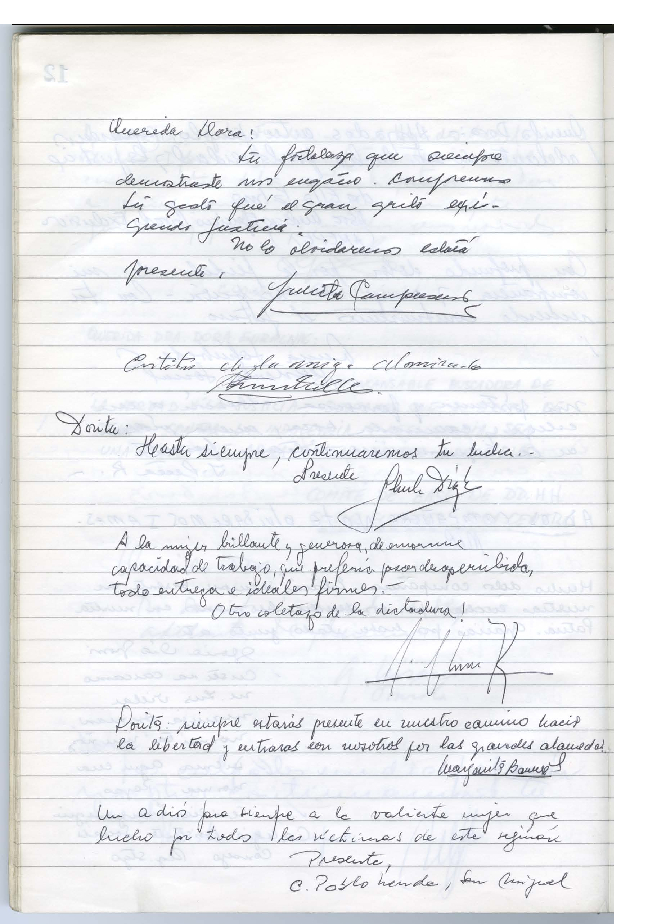 12
Querida Dora!
tu fortaleza que siempre
demostraste nos engaño. Comprenmos
tu gesto fué el gran grito exi-
giendo Justicia.
No lo olvidaremos estará
presente.
Julieta Campusano
de la amiga
Dorita:
Hasta siempre, continuaremos tu lucha.-
Presente
A la mujer brillante y generosa, de enorme
capacidad de trabajo, que prefería pasar desapercibida,
toda entrega e ideales firmes.-
Otro coletazo de la dictadura!
Dorita: siempre estarás presente en nuestro camino hacia
la libertad y entraras con nosotros por las grandes alamedas
Margarita
Un adiós para siempre a la valiente mujer que
lucho por todos las victimas de este regimén
Presente,
C. Pablo Neruda, San Miguel